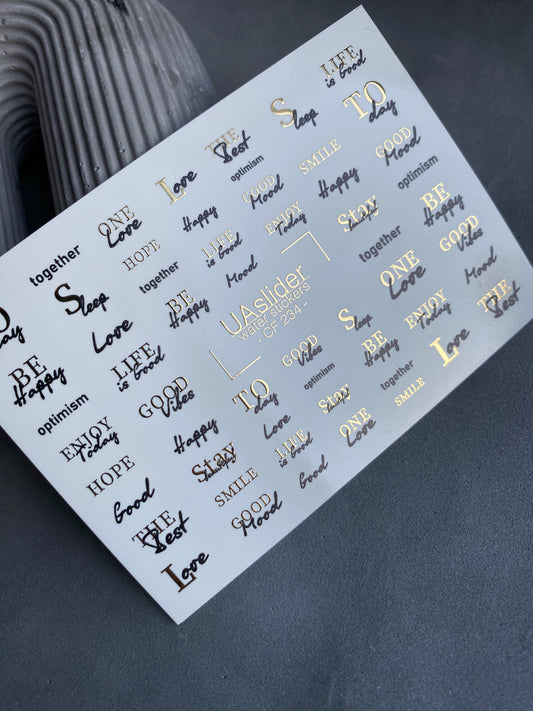 LIFE
is Good
TO
day
Sleep
THE
Best
Love
GOOD
Mood
SMILE
optimism
ONE
Love
Happy
GOOD
Mood
Happy
optimism
HOPE
together
LIFE
is Good
ENJOY
Today
Stay
BE
Happy
together
Sleep
BE
Happy
Mood
UAslider
water stickers
- CF 234 -
together
ONE
Love
GOOD
Vibes
Mood
TO
day
BE
Happy
Love
LIFE
is Good
GOOD
Vibes
Sleep
ENJOY
Today
THE
Best
optimism
ENJOY
Today
HOPE
Happy
TO
day
GOOD
Vibes
optimism
BE
Happy
together
Love
Good
Stay
Love
Stay
SMILE
THE
Best
SMILE
LIFE
is Good
ONE
Love
Love
GOOD
Mood
Good